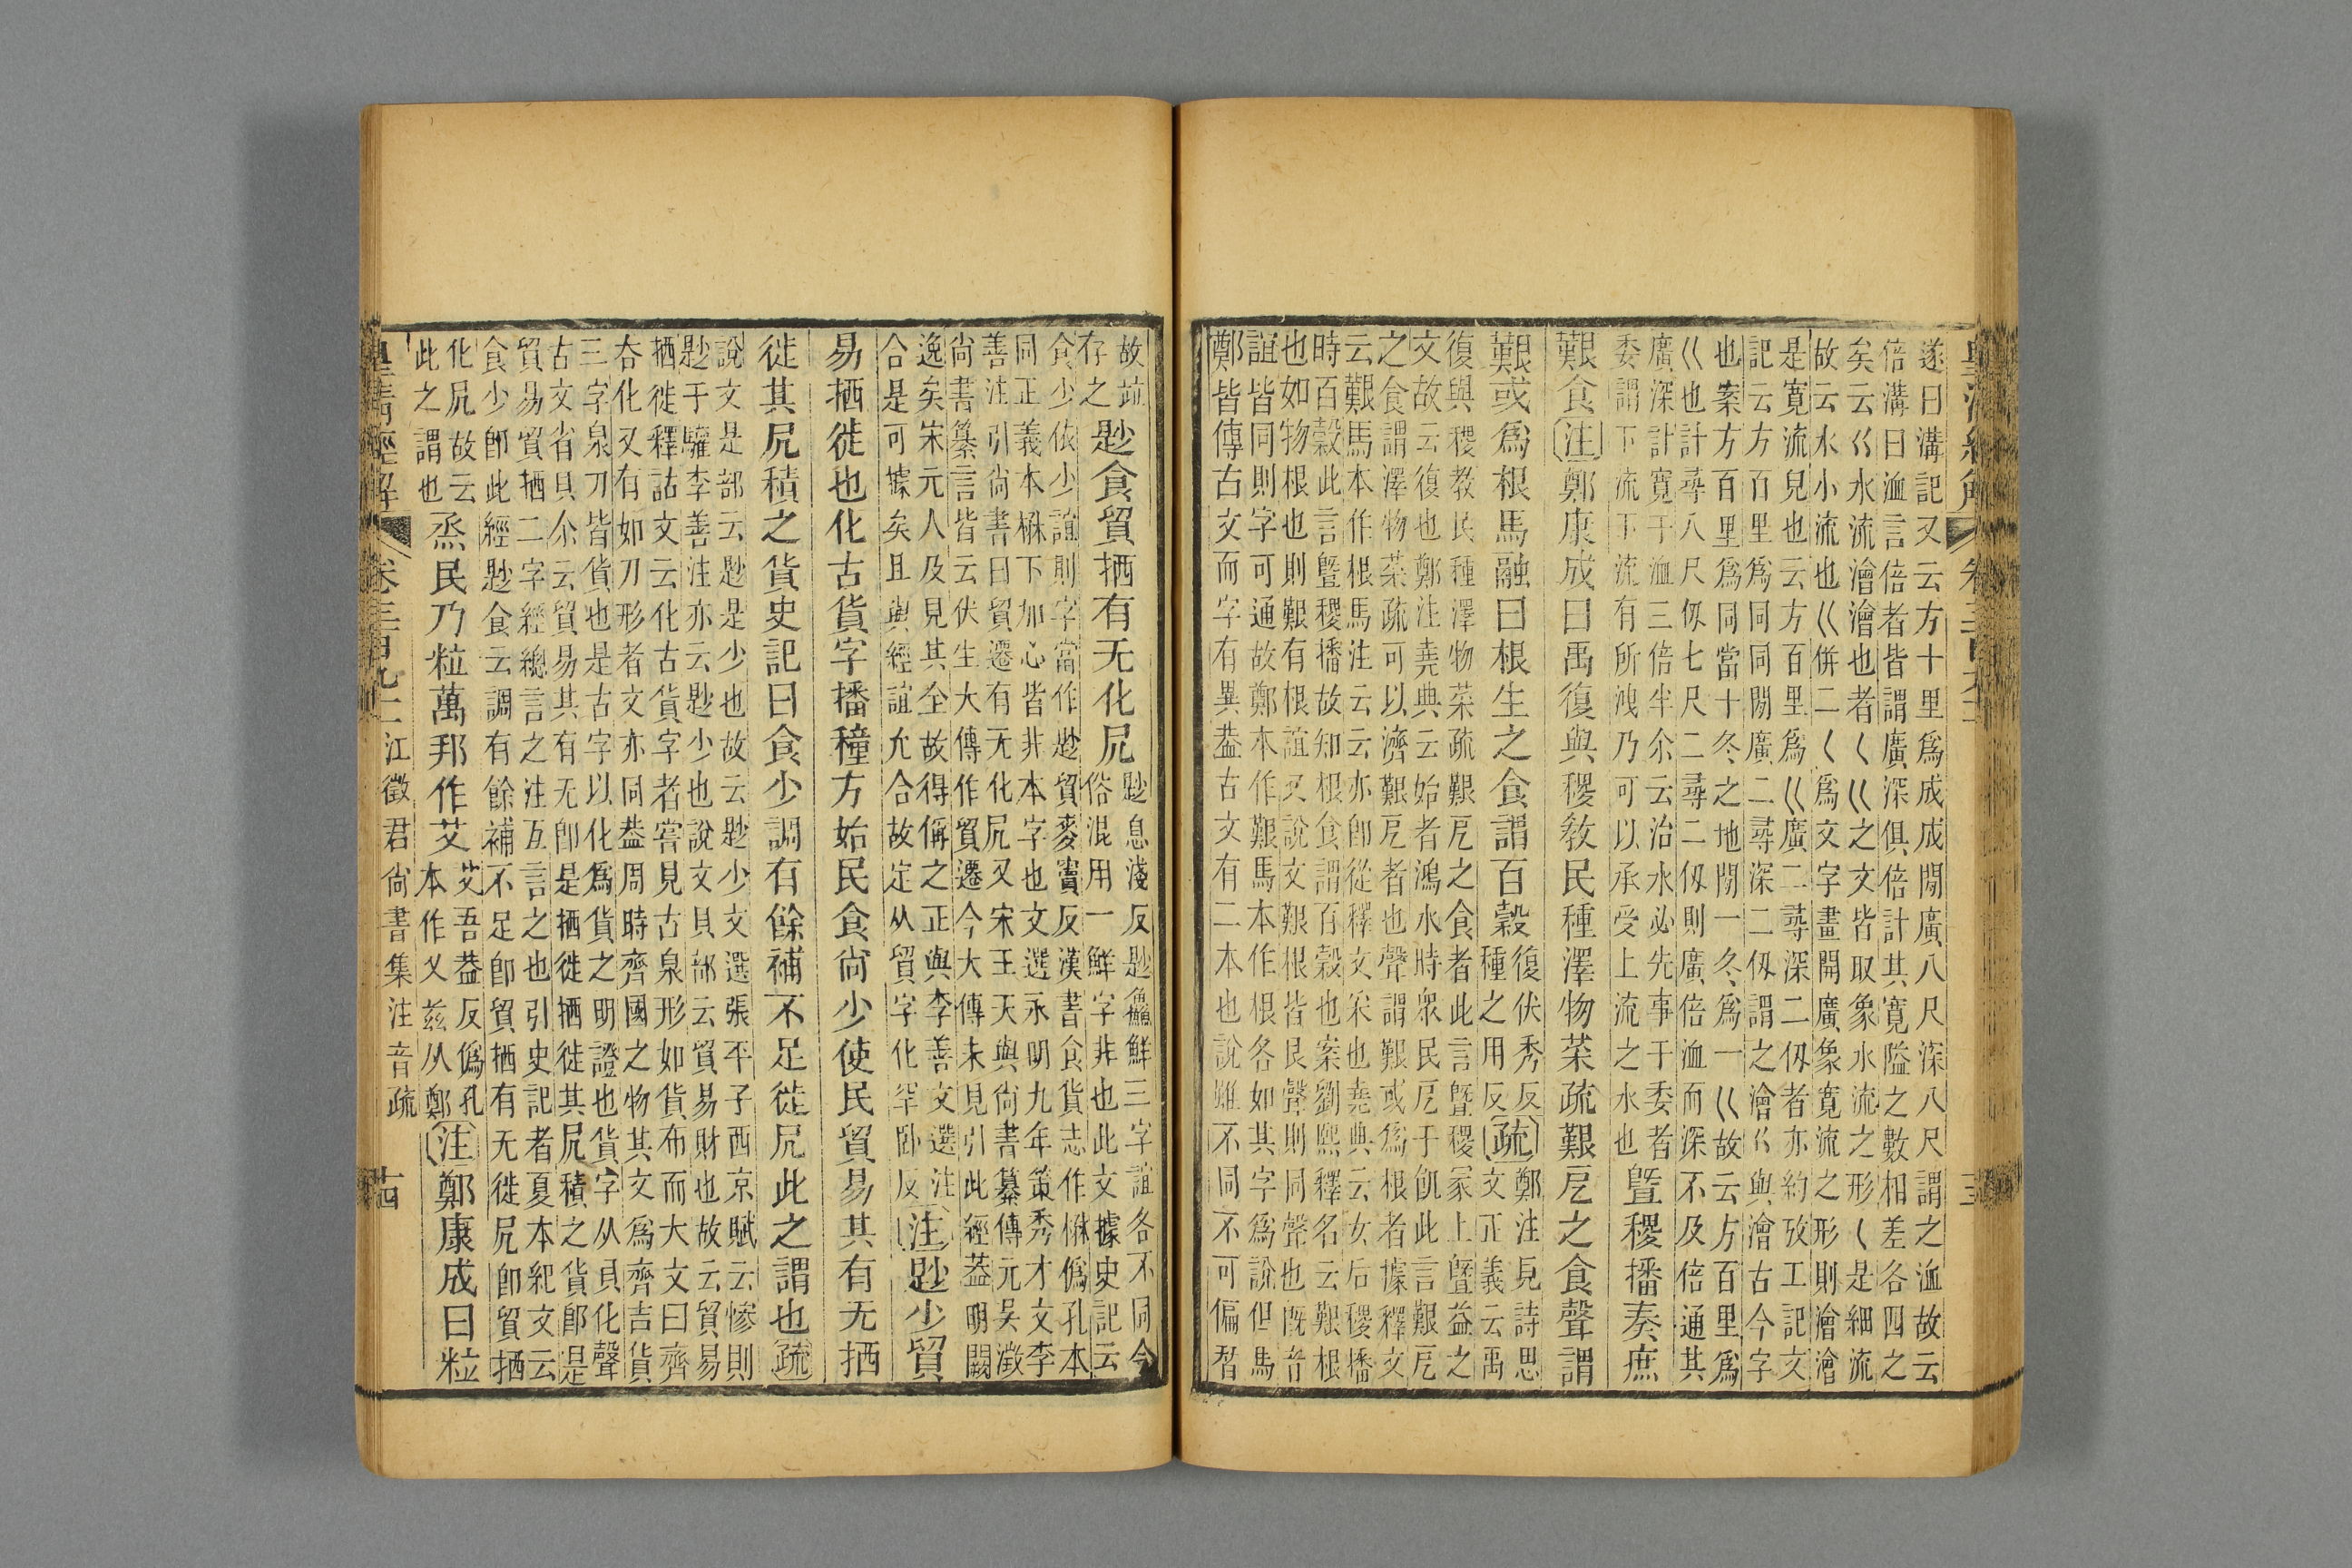 遂曰溝記又云方十里爲成成閒廣八尺深八尺謂之洫故云
倍溝曰洫言倍者皆謂廣深俱倍計其寬隘之數相差各四之
矣云巜水流澮澮也者𡿨巜之文皆取象水流之形𡿨是細流
故云水小流也巜併二𡿨爲文字畫開廣象寬流之形則澮澮
是寬流皃也云方百里爲巜廣二尋深二仞者亦約攷工記文
記云方百里爲同同閒廣二尋深二仞謂之澮巜與澮古今字
也案方百里爲同當十冬之地閒一冬爲一巜故云方百里爲
巜也計尋八尺仞七尺二尋二仞則廣倍洫而深不及倍通其
廣深計寬于洫三倍半尒云治水必先事于委者
委謂下流下流有所洩乃可以承受上流之水也
曁稷播奏庶
艱食注鄭康成曰禹復與稷敎民種澤物菜疏艱戹之食聲謂
艱或爲根馬融曰根生之食謂百穀
復伏秀反
種之用反
疏
鄭注見詩思
文正義云禹
復與稷教民種澤物菜疏艱戹之食者此言曁稷冡上曁益之
文故云復也鄭注堯典云始者鴻水時衆民戹于飢此言艱戹
之食謂澤物菜疏可以濟艱戹者也聲謂艱或爲根者據釋文
云艱馬本作根馬注云云亦卽從釋文采也堯典云女后稷播
時百穀此言曁稷播故知根食謂百穀也案劉熙釋名云艱根
也如物根也則艱有根誼又說文艱根皆艮聲則同聲也旣音
誼皆同則字可通故鄭本作艱馬本作根各如其字爲說但馬
鄭皆傳古文而字有異葢古文有二本也說雖不同不可偏晳
故𠀤
存之
尟食貿㮛有无化凥
尟息淺反尟鱻鮮三字誼各不同今
俗混用一鮮字非也此文據史記云
食少依少誼則字當作尟貿麥竇反漢書食貨志作楙僞孔本
同正義本楙下加心皆非本字也文選永明九年策秀才文李
善注引尙書曰貿遷有无化凥又宋王天與尙書纂傳元吴澂
尙書纂言皆云伏生大傳作貿遷今大傳未見引此經葢明闕
逸矣宋元人及見其全故得偁之正與李善文選注
合是可據矣且與經誼允合故定从貿字化罕卧反
注尟少貿
易㮛徙也化古貨字播穜方始民食尙少使民貿易其有无㮛
徙其凥積之貨史記曰食少調有餘補不足徙凥此之謂也疏
說文是部云尟是少也故云尟少文選張平子西京賦云慘則
尟于驩李善注亦云尟少也說文貝部云貿易財也故云貿易
㮛徙釋詁文云化古貨字者嘗見古泉形如貨布而大文曰齊
厺化又有如刀形者文亦同葢周時齊國之物其文爲齊吉貨
三字泉刀皆貨也是古字以化爲貨之明證也貨字从貝化聲
古文省貝尒云貿易其有无卽是㮛徙㮛徙其凥積之貨卽是
貿易貿㮛二字經總言之注互言之也引史記者夏本紀文云
食少卽此經尟食云調有餘補不足卽貿㮛有无徙凥卽貿㮛
化凥故云
此之謂也
烝民乃粒萬邦作艾
艾吾葢反僞孔
本作乂兹从鄭
注鄭康成曰粒
皇清經解 卷三百九十二 江徵君尙書集注音疏 十四